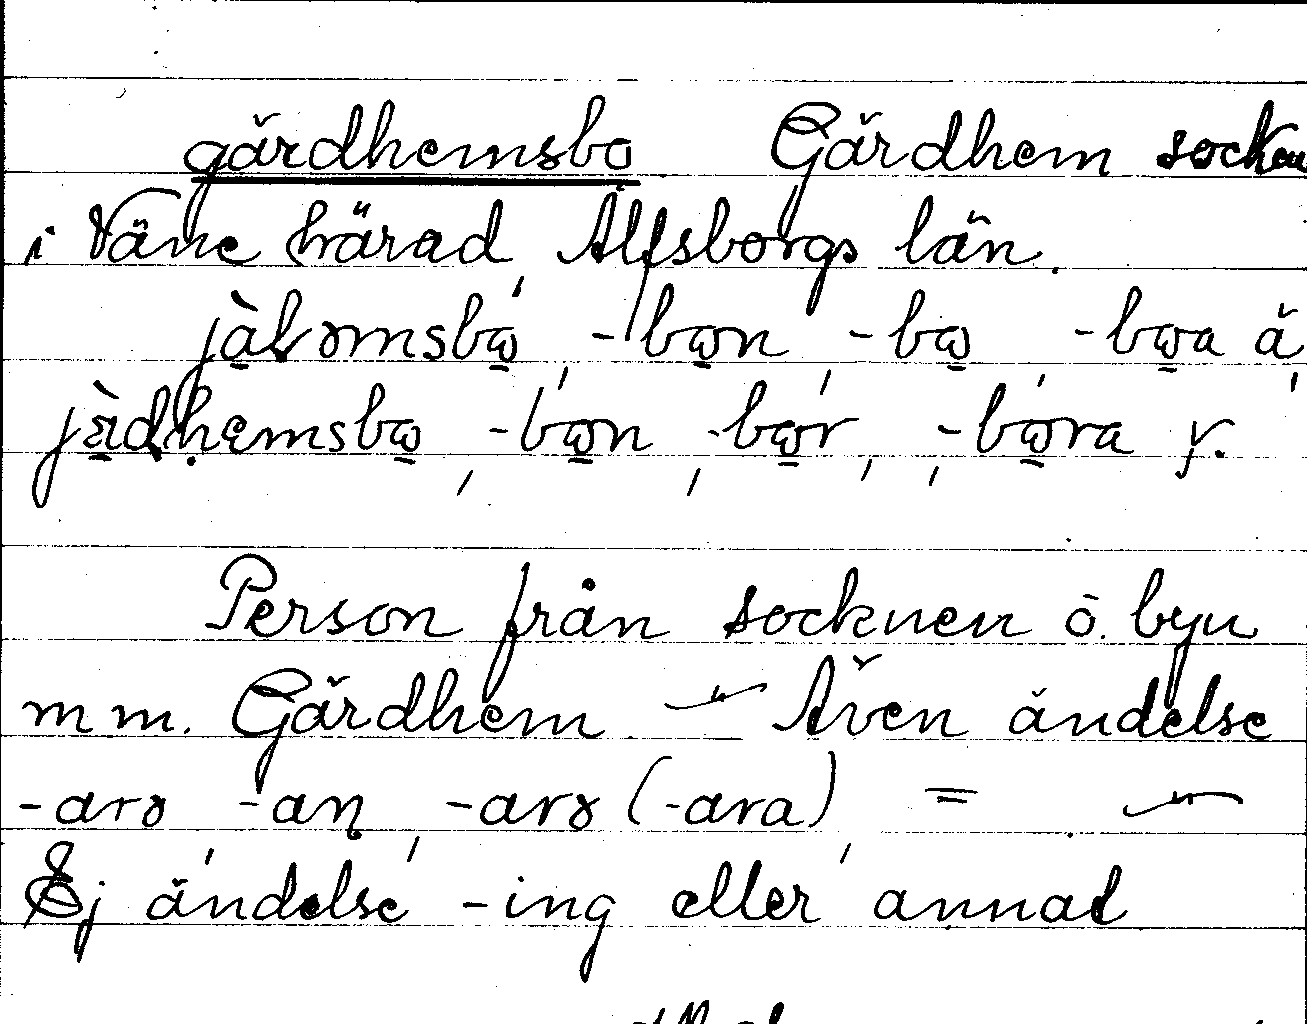 gärdhemsbo Gärdhem socken
i Väne härad, Älfsborgs län.
-bɷn, -bɷ, -bɷa å,
-bɷn, -bɷr, -bɷra y.
Person från socknen o. byn
m m. Gärdhem — Även ändelse
-arɤ, -aṇ, -arɤ (-ara), = —
Ej ändelse -ing eller annad